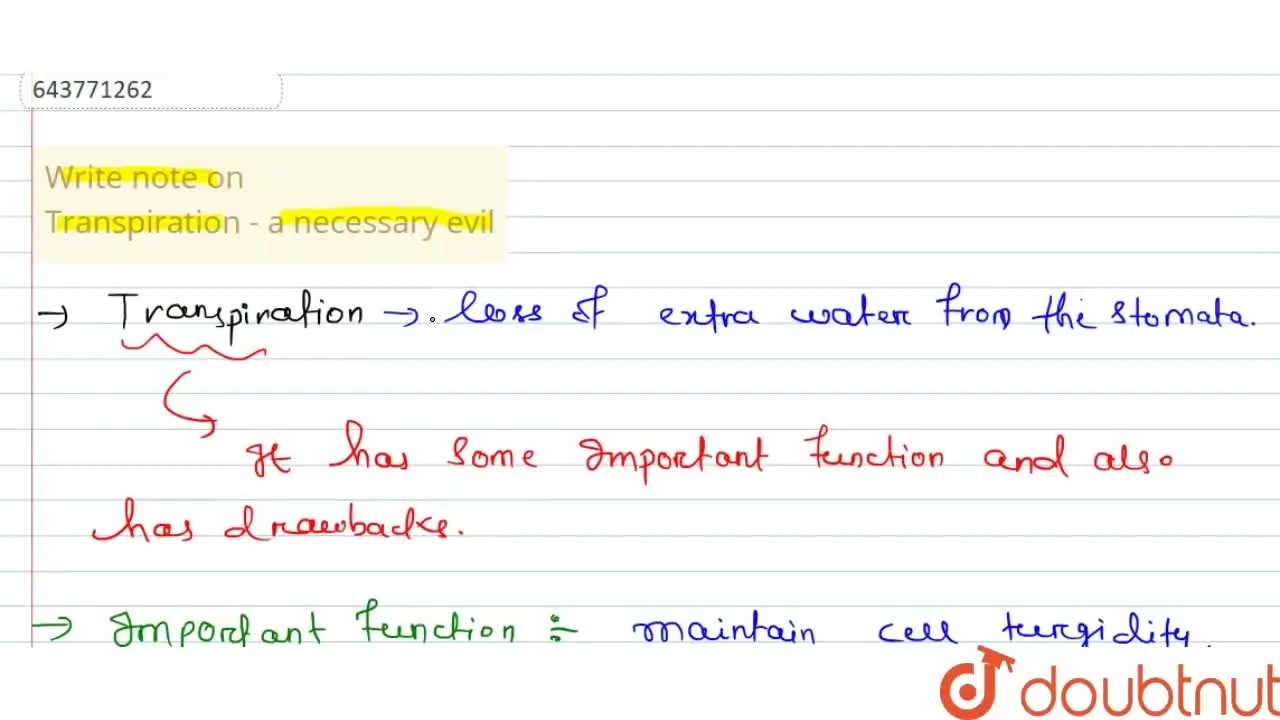 643771262
Write note on
Transpiration - a necessary evil
→ Transpiration → . loss of extra water from the stomata.
It has some important function and also
has drawbacks.
→ Important function ÷ maintain cell turgidity.
doubtnut